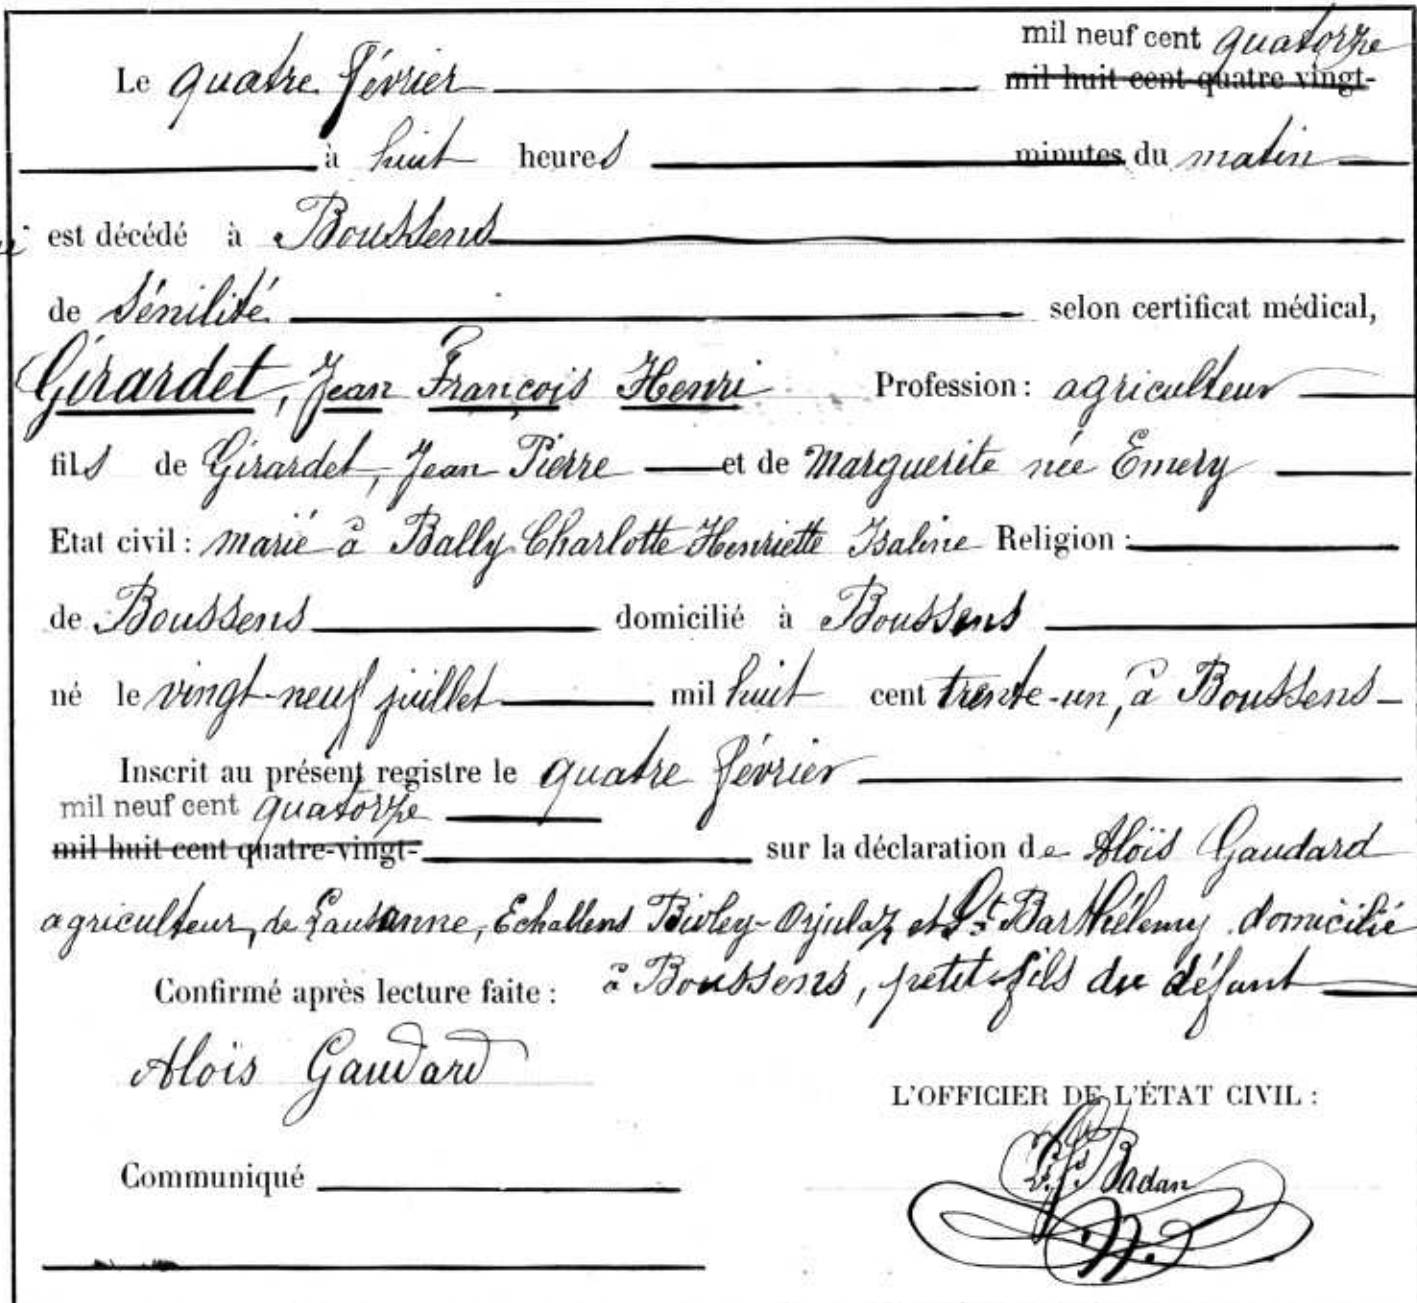 mil neuf cent quatorze
Le quatre février mil huit cent quatre vingt-
à huit heures minutes du matin
est décédé à Boussens
de Sénilité selon certificat médical,
Girardet, Jean François Henri Profession: agriculteur
fils de Girardet, Jean Pierre et de Marguerite née Emery
Etat civil: marié à Bally Charlotte Henriette Isaline Religion:
de Boussens domicilié à Boussens
né le vingt-neuf juillet mil huit cent trente-un, à Boussens
Inscrit au présent registre le quatre février
mil neuf cent quatorze
mil huit cent quatre-vingt- sur la déclaration de Aloïs Gaudard
agriculteur, de Lausanne, Echallens Bioley-Orjulaz et St. Barthélemy domicilié
à Boussens, petit-fils du défunt
Confirmé après lecture faite:
Aloïs Gaudard
L'OFFICIER DE L'ÉTAT CIVIL:
Badan
Communiqué